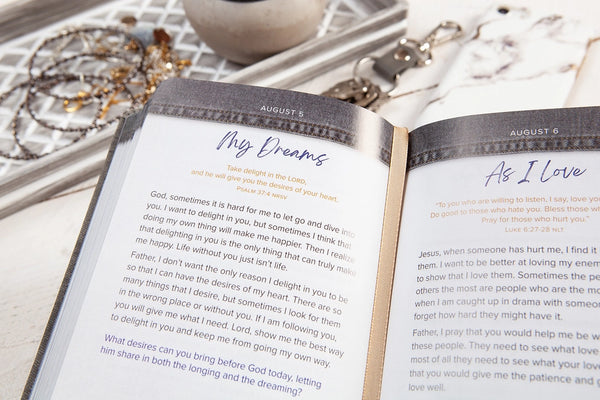 AUGUST 5
My Dreams
Take delight in the LORD,
and he will give you the desires of your heart.
PSALM 37:4 NRSV
God, sometimes it is hard for me to let go and dive into
you. I want to delight in you, but sometimes I think that
doing my own thing will make me happier. Then I realize
that delighting in you is the only thing that can truly make
me happy. Life without you just isn't life.
Father, I don't want the only reason I delight in you to be
so that I can have the desires of my heart. There are so
many things that I desire, but sometimes I look for them
in the wrong place or without you. If I am following you,
you will give me what I need. Lord, show me the best way
to delight in you and keep me from going my own way.
What desires can you bring before God today, letting
him share in both the longing and the dreaming?
AUGUST 6
As I Love
"To you who are willing to listen, I say, love you
Do good to those who hate you. Bless those w
Pray for those who hurt you."
LUKE 6:27-28 NLT
Jesus, when someone has hurt me, I find it
them. I want to be better at loving my enem
to show that I love them. Sometimes the pe
others the most are people who are the mo
when I am caught up in drama with someon
forget how hard they might have it.
Father, I pray that you would help me be w
these people. They need to see what love
most of all they need to see what your love
that you would give me the patience and g
love well.